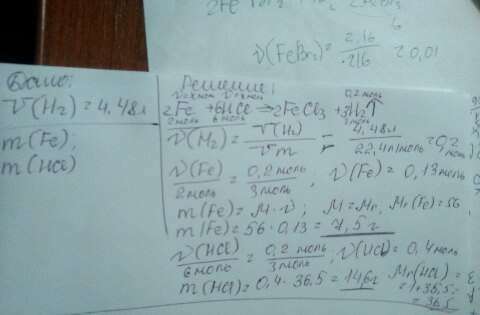 6
ν(FeBr₂) = 2,16 / 216 = 0,01
Дано:
V(H₂) = 4,48л
m(Fe),
m(HCl)
Решение:
ν=xмоль ν=xмоль 0,2моль
2Fe + 6HCl → 2FeCl₃ + 3H₂↑
2моль 6моль 3моль
ν(H₂) = V(H₂) / Vm = 4,48л / 22,4л/моль = 0,2 моль
ν(Fe) / 2моль = 0,2моль / 3моль ; ν(Fe) = 0,13моль
m(Fe) = M·ν ; M = Mr, Mr(Fe) = 56
m(Fe) = 56 · 0,13 = 7,5г
ν(HCl) / 6моль = 0,2 моль / 3моль ; ν(HCl) = 0,4моль
m(HCl) = 0,4 · 36,5 = 146г Mr(HCl) =
= 1+36,5
= 36,5